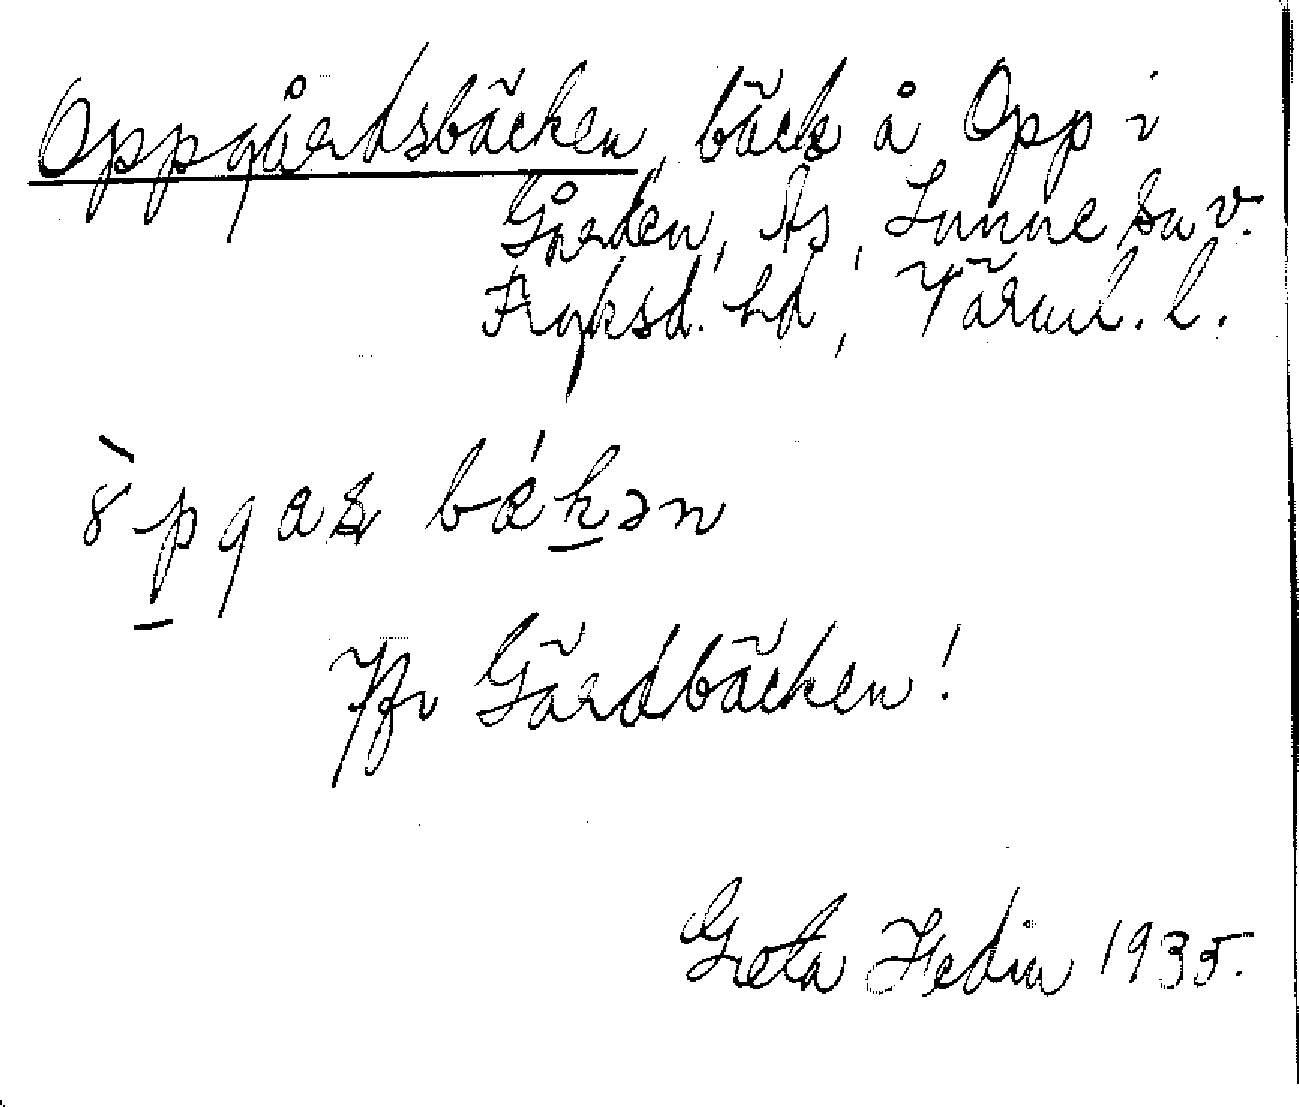 Oppgårdsbäcken, bäck å Opp i
Gården, Ås, Sunne sn v.
Fryksd. hd, Värml. l.
Jfr Gårdbäcken!
Greta Hedin 1935.